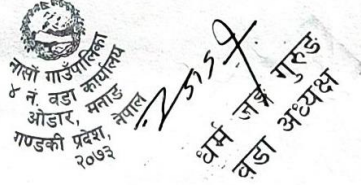 नासोँ गाउँपालिका
४ नं. वडा कार्यालय
ओडार, मनाङ
गण्डकी प्रदेश, नेपाल
२०७३
धर्म जङ्ग गुरुङ
वडा अध्यक्ष